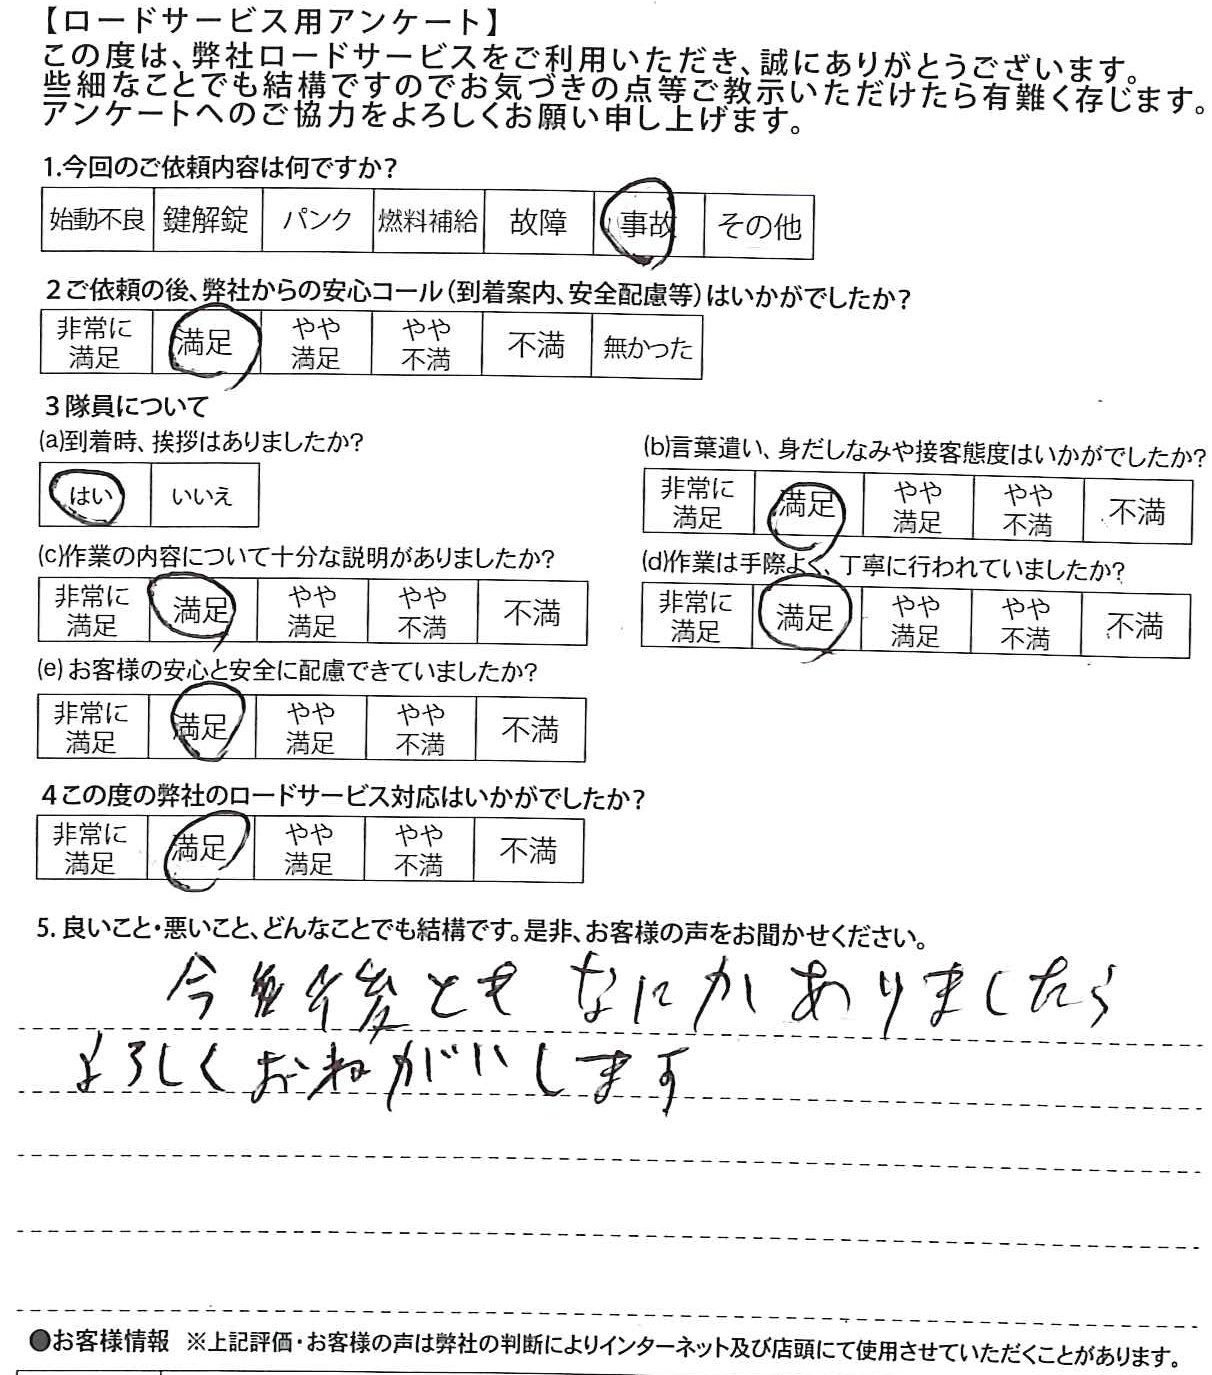 【ロードサービス用アンケート】
この度は、弊社ロードサービスをご利用いただき、誠にありがとうございます。
些細なことでも結構ですのでお気づきの点等ご教示いただけたら有難く存じます。
アンケートへのご協力をよろしくお願い申し上げます。
1.今回のご依頼内容は何ですか?
始動不良 鍵解錠 パンク 燃料補給 故障 事故 その他
2ご依頼の後、弊社からの安心コール(到着案内、安全配慮等)はいかがでしたか?
非常に満足 満足 やや満足 やや不満 不満 無かった
3隊員について
(a)到着時、挨拶はありましたか?
はい いいえ
(b)言葉遣い、身だしなみや接客態度はいかがでしたか?
非常に満足 満足 やや満足 やや不満 不満
(c)作業の内容について十分な説明がありましたか?
非常に満足 満足 やや満足 やや不満 不満
(d)作業は手際よく、丁寧に行われていましたか?
非常に満足 満足 やや満足 やや不満 不満
(e)お客様の安心と安全に配慮できていましたか?
非常に満足 満足 やや満足 やや不満 不満
4この度の弊社のロードサービス対応はいかがでしたか?
非常に満足 満足 やや満足 やや不満 不満
5. 良いこと・悪いこと、どんなことでも結構です。是非、お客様の声をお聞かせください。
今後とも なにか ありましたら
よろしくおねがいします
●お客様情報 ※上記評価・お客様の声は弊社の判断によりインターネット及び店頭にて使用させていただくことがあります。